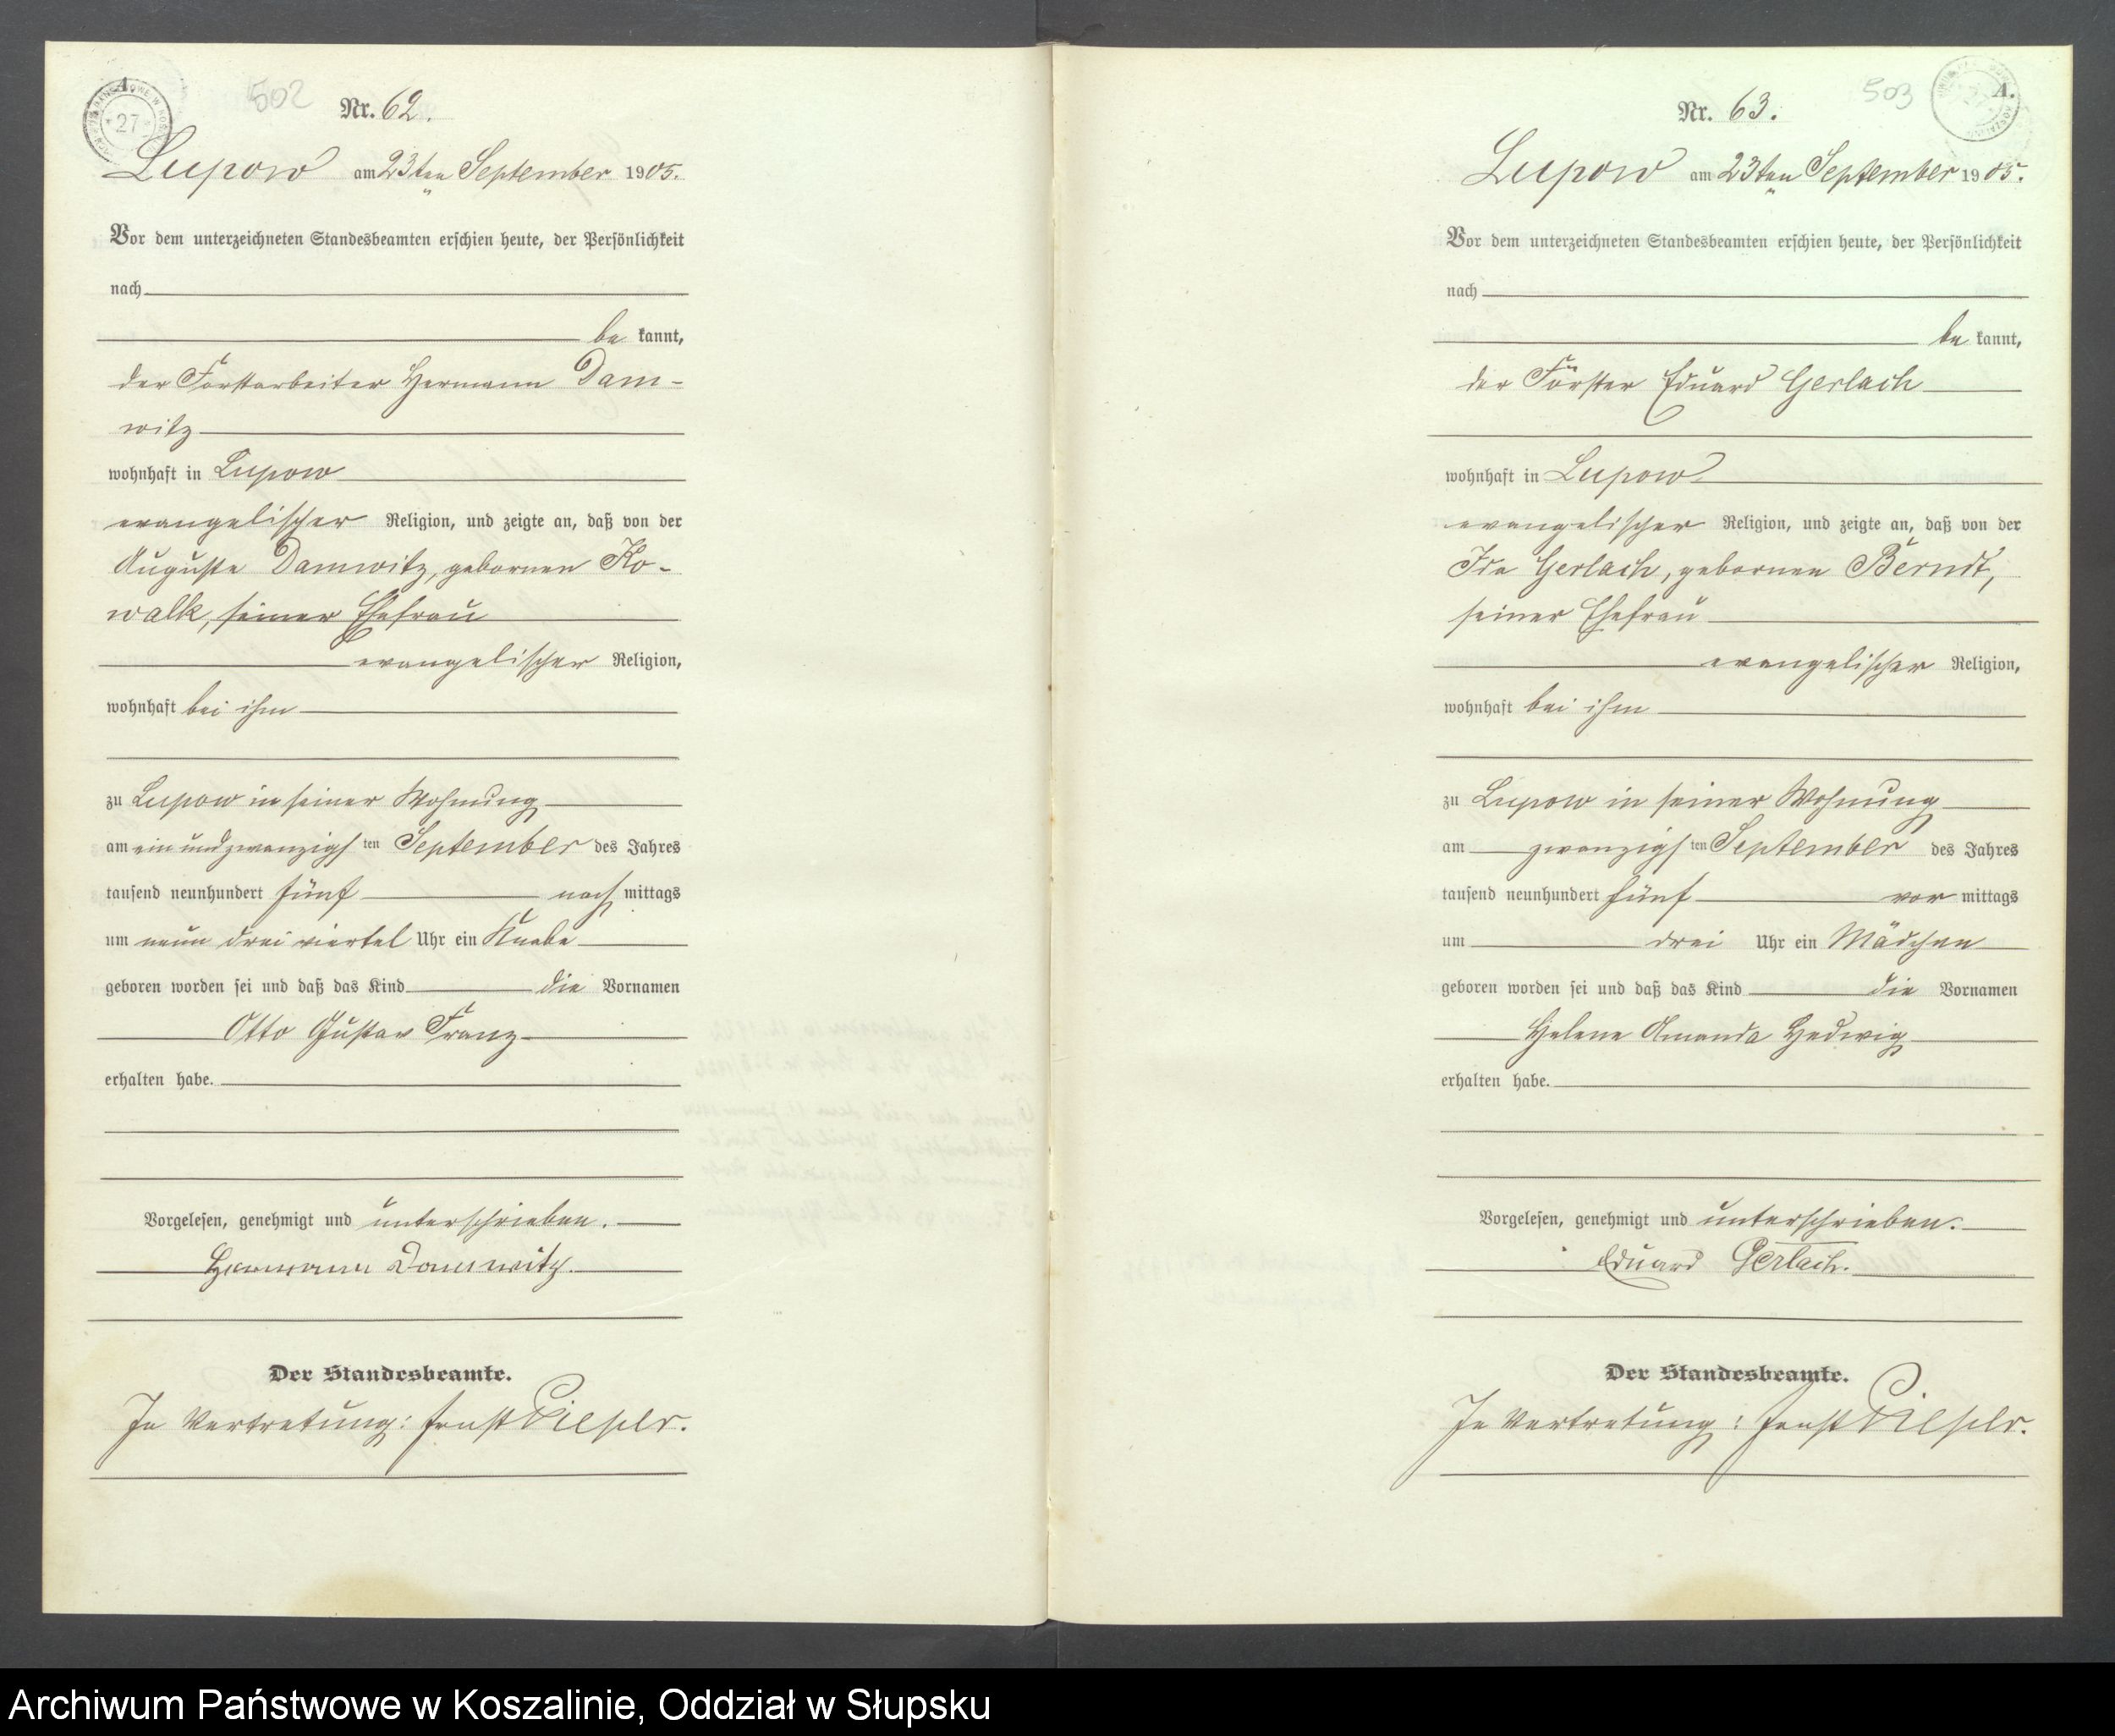 A.
502
Nr. 62.
27
Lupow am 23ten September 1905.
Vor dem unterzeichneten Standesbeamten erschien heute, der Persönlichkeit
nach
be kannt,
der Forstarbeiter Hermann Dam-
witz
wohnhaft in Lupow
evangelischer Religion, und zeigte an, daß von der
Auguste Damwitz, gebornen Ko-
walk, seiner Ehefrau
evangelischer Religion,
wohnhaft bei ihm
zu Lupow in seiner Wohnung
am ein und zwanzigsten September des Jahres
tausend neunhundert fünf nach mittags
um neun drei viertel Uhr ein Knabe
geboren worden sei und daß das Kind die Vornamen
Otto Gustav Franz
erhalten habe.
Vorgelesen, genehmigt und unterschrieben.
Hermann Damwitz.
Der Standesbeamte.
In Vertretung: Ernst
503
A.
Nr. 63.
Lupow am 23ten September 1905.
Vor dem unterzeichneten Standesbeamten erschien heute, der Persönlichkeit
nach
be kannt,
der Förster Eduard Gerlach
wohnhaft in Lupow
evangelischer Religion, und zeigte an, daß von der
Ida Gerlach, gebornen Berndt,
seiner Ehefrau
evangelischer Religion,
wohnhaft bei ihm
zu Lupow in seiner Wohnung
am zwanzigsten September des Jahres
tausend neunhundert fünf vor mittags
um drei Uhr ein Mädchen
geboren worden sei und daß das Kind die Vornamen
Helene Amanda Hedwig
erhalten habe.
Vorgelesen, genehmigt und unterschrieben.
Eduard Gerlach.
Der Standesbeamte.
In Vertretung: Ernst
Archiwum Państwowe w Koszalinie, Oddział w Słupsku